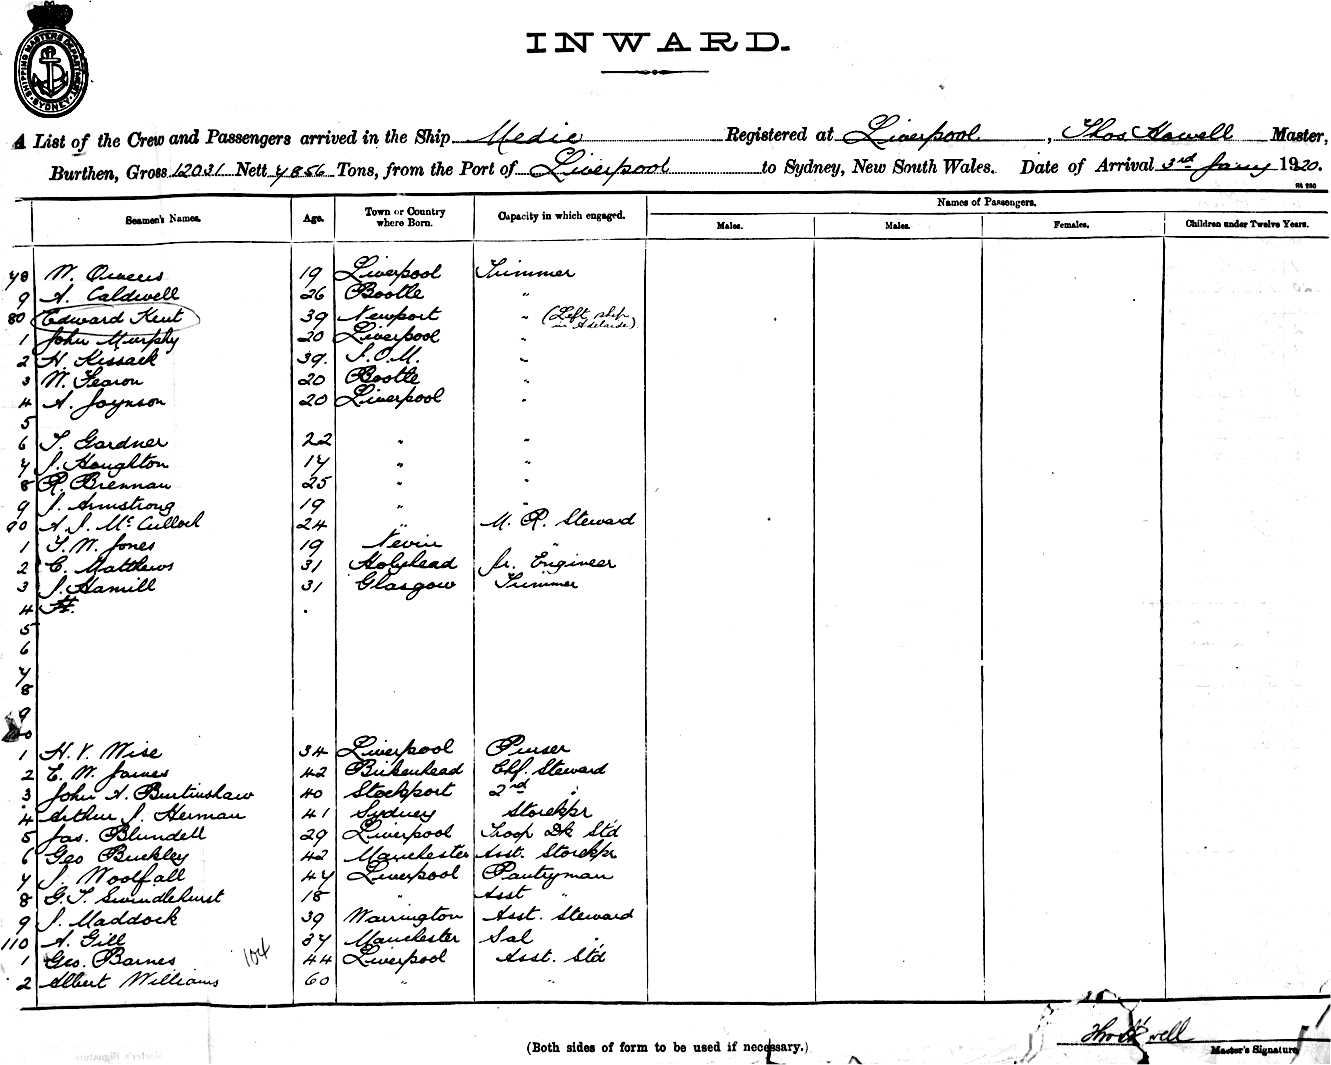 SHIPPING MASTER'S DEPARTMENT
SYDNEY
INWARD.
A List of the Crew and Passengers arrived in the Ship Medic Registered at Liverpool, Thos Howell Master,
Burthen, Gross 12031 Nett 4856 Tons, from the Port of Liverpool to Sydney, New South Wales. Date of Arrival 3rd Jany 1920.
Seamen's Names. Age. Town or Country where Born. Capacity in which engaged. Names of Passengers.
Males. Males. Females. Children under Twelve Years.
78 W. Owens 19 Liverpool Trimmer
9 A. Caldwell 26 Bootle "
80 Edward Kent 39 Newport " (Left ship in Adelaide)
1 John Murphy 20 Liverpool "
2 H. Kissack 39. I.O.M. "
3 W. Fearon 20 Bootle "
4 A. Joynson 20 Liverpool "
5
6 T. Gardner 22 " "
7 J. Houghton 17 " "
8 R. Brennan 25 " "
9 J. Armstrong 19 " "
90 A. J. McCulloch 24 " M. R. Steward
1 T. W. Jones 19 Nevin "
2 C. Matthews 31 Holyhead Jr. Engineer
3 J. Hamill 31 Glasgow Trimmer
4 H.
5
6
7
8
9
1 H. V. Wise 34 Liverpool Purser
2 E. W. James 42 Birkenhead Chf. Steward
3 John A. Burtinshaw 40 Stockport 2nd "
4 Arthur J. Herman 41 Sydney Storekpr
5 Jas. Blundell 29 Liverpool Troop Dk Std
6 Geo Buckley 42 Manchester Asst. Storekpr
7 J. Woolfall 47 Liverpool Pantryman
8 G. T. Swindlehurst 18 " Asst "
9 J. Maddock 39 Warrington Asst. Steward
110 A. Gill 37 Manchester Sal "
1 Geo. Barnes 104 44 Liverpool Asst. Std
2 Albert Williams 60 " "
(Both sides of form to be used if necessary.)
Master's Signature